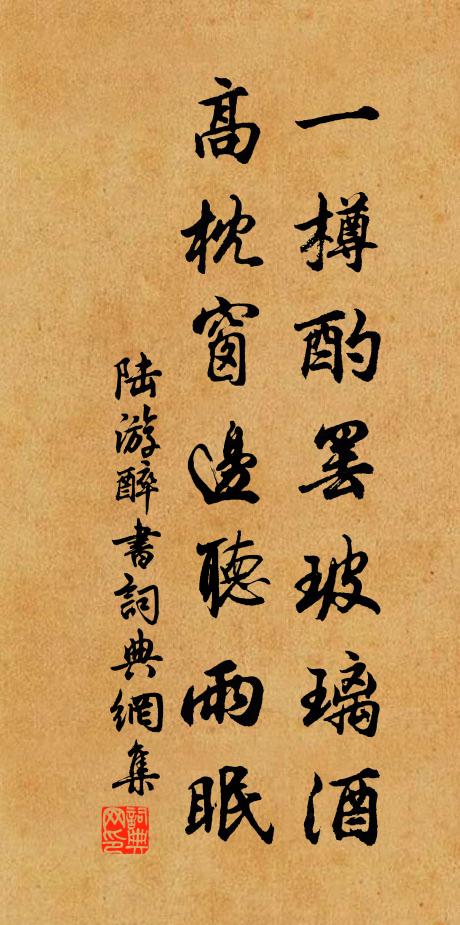 一樽酌罢玻璃酒
高枕窗邊聽雨眠
陆游醉書詞典網集
詞典
网印